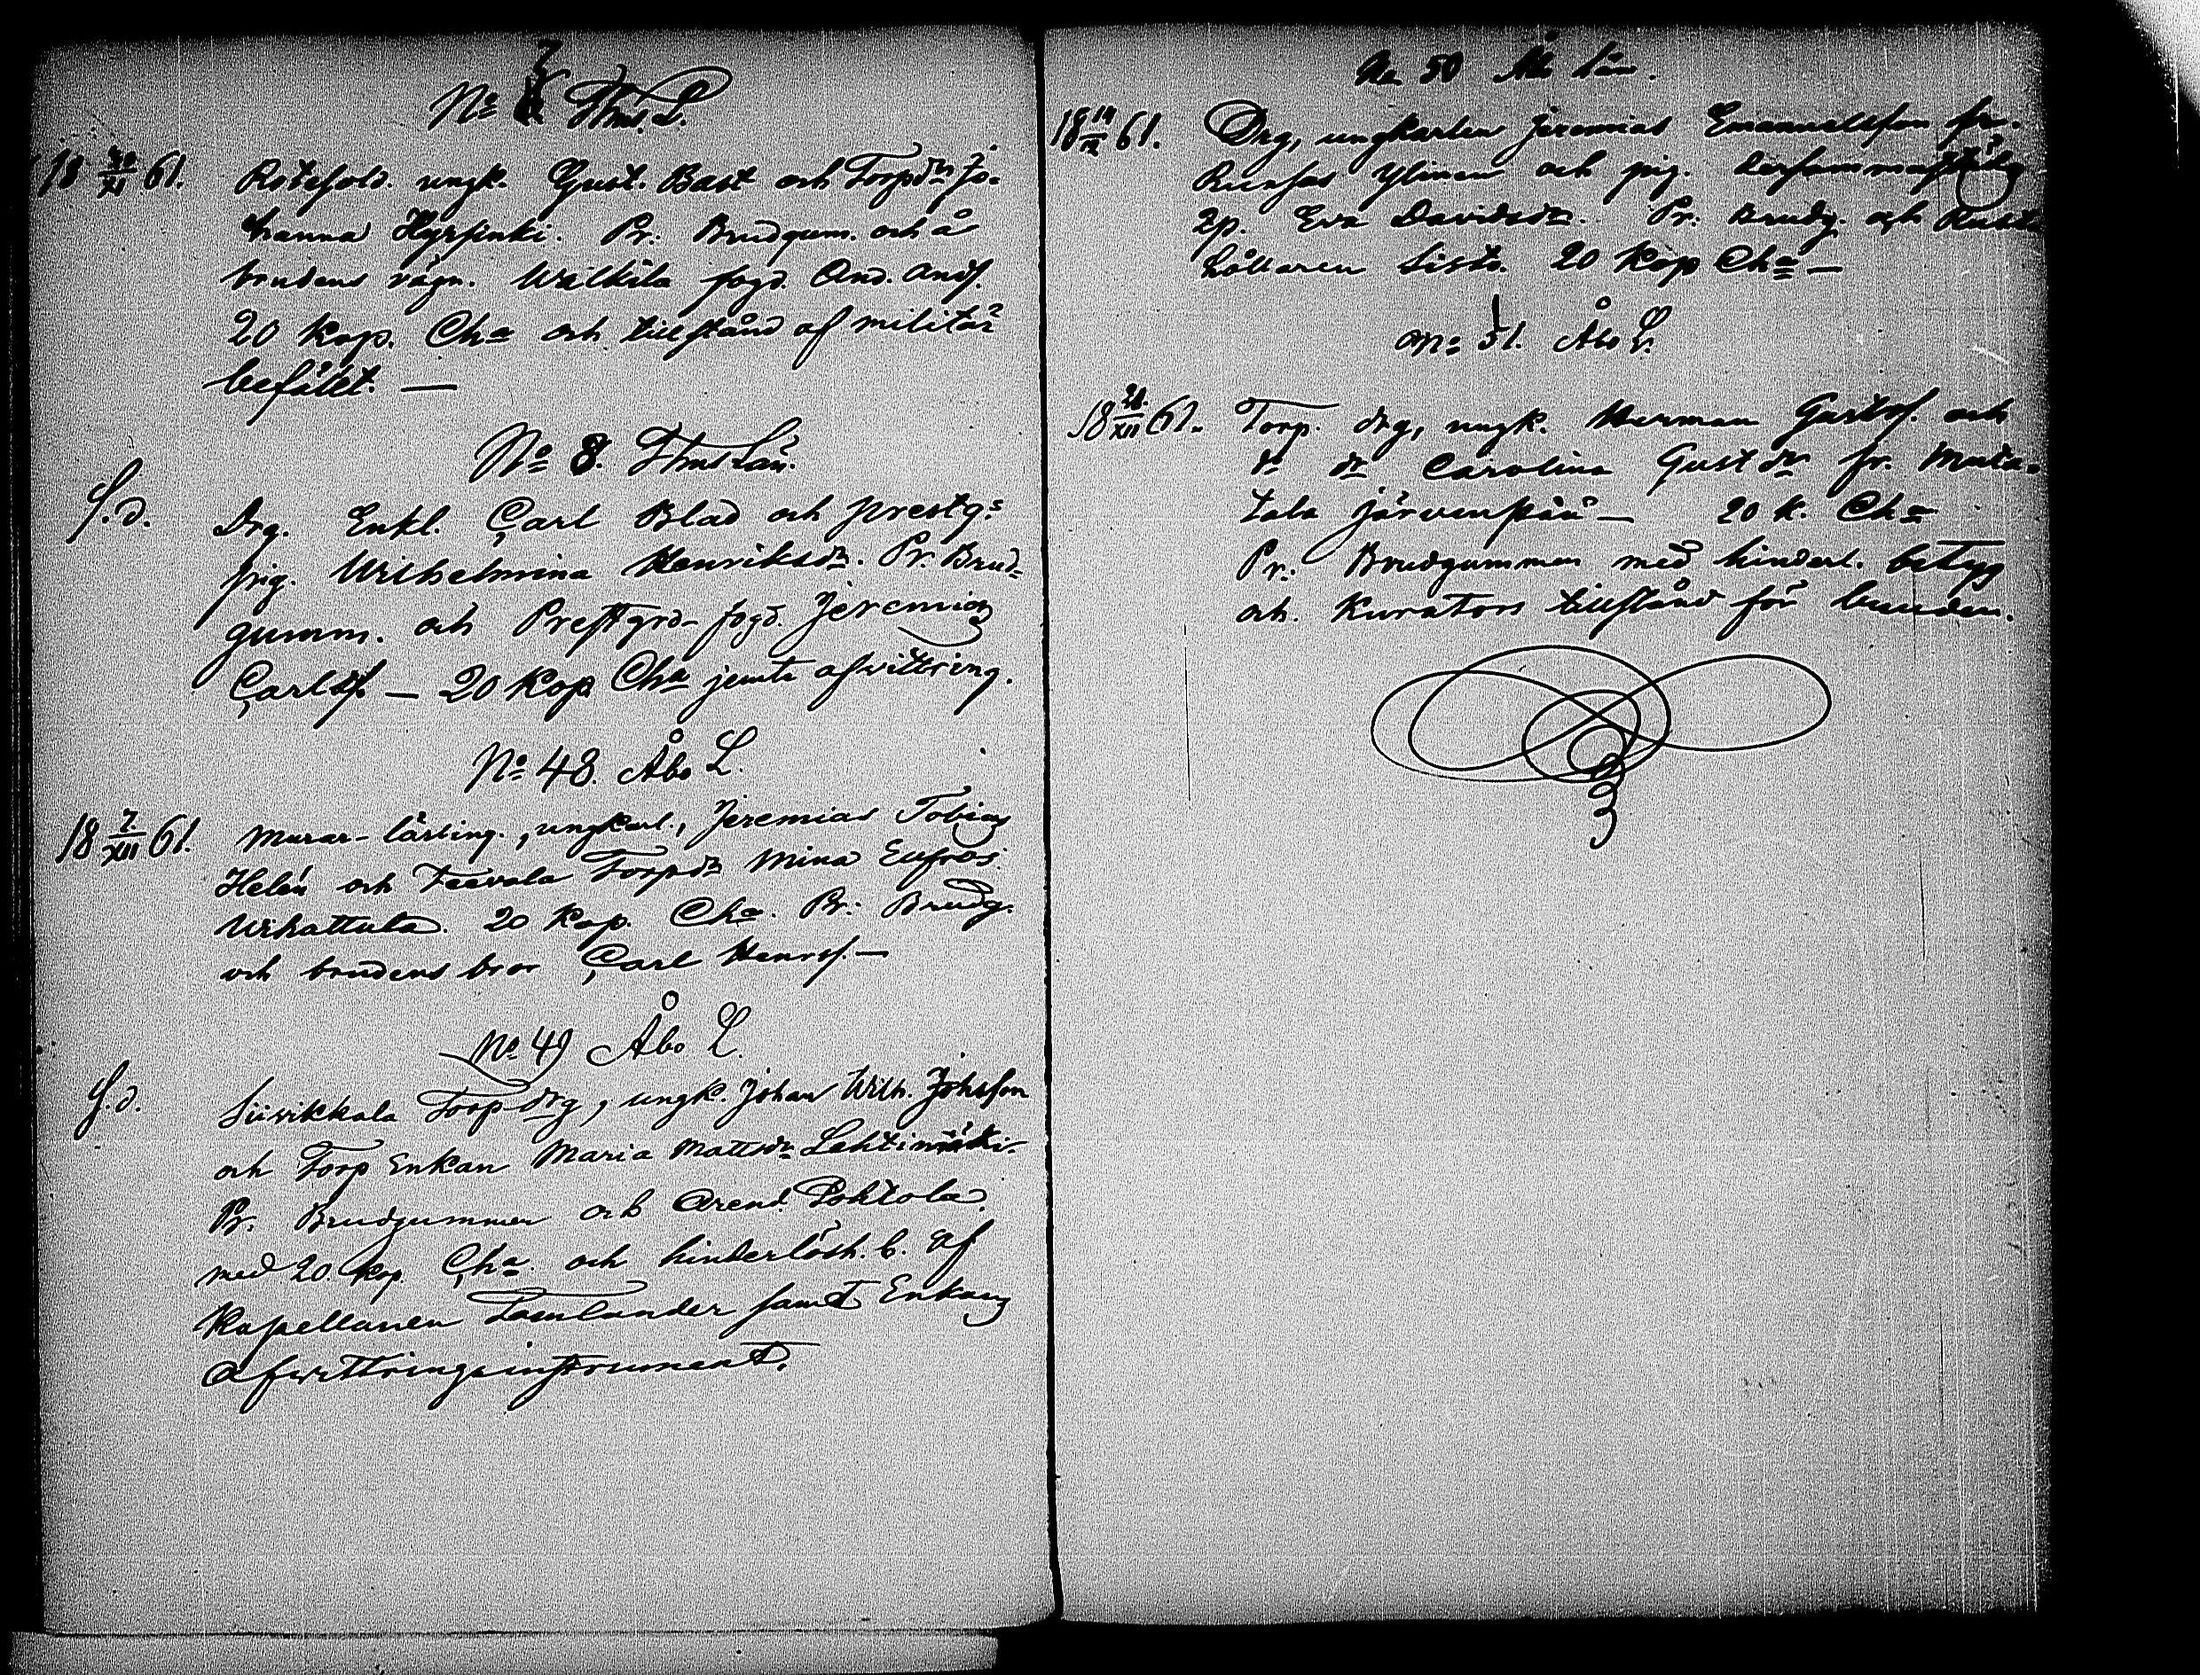 No 7 Thus L.
18 30/XI 61. Rotesold. ungk. Gust. Bast och Torpdr Jo-
hanna Hyrsinki. Pr: Brudgum. och å
brudens vägn. Walkila fogd. And. Andf.
20 kop. Cha och tillstånd af militär
befälet. —
No 8. Thus Län.
S.d. Drg. Enkl. Carl Blad och prestg:s
pig. Wilhelmina Henriksdr. Pr. Brud-
gumm. och Prestgrd- fogd. Jeremias
Carlss. — 20 Kop Cha jemte afvittring.
No 48. Åbo L.
18 7./XII 61. Murar-lärling., ungkarl., Jeremias Tobias
Helén och Teevala Torpdr Mina Eufros:
Wihattula. 20 Kop. Cha. Pr: Brudg.
och brudens bror Carl Henrs. —
No 49 Åbo L.
S.d. Siivikkala Torp drg, ungk. Johan Wilh. Johsson
och Torp Enkan Maria Mattsdr Lehtimäki.
Pr. Brudgummen och Arend. Pohtola.
med 20. Kop. Cha. och hinderlösh. b. af
Kapellanen Tamlander samt Enkans
Afwittringsinstrument.
No 50 Åbo Län.
18 14/12 61. Drg, ungkarlen Jeremias Emanuelsson fr.
Runsas Ylinen och pig. dersammastädes
2p. Eva Davidsdr. Pr: Brudg. och Rust-
hållaren Sisto. 20 Kop Cha —
No 51. Åbo L.
18 26./XII 61. Torp. drg, ungk. Herman Gustafs. och
d. dr Carolina Gustdr fr. Muta-
tala Järvenpää — 20 K. Cha
Pr: Brudgummen med hinderl. betyg
och Kurators tillstånd för bruden.